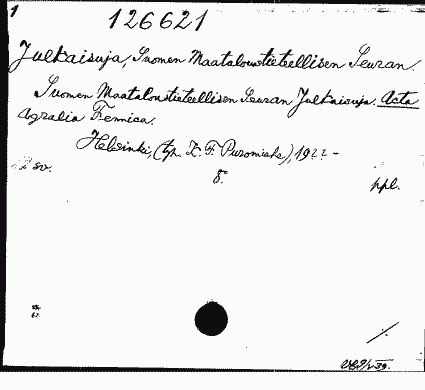 1
126621
Julkaisuja, Suomen Maataloustieteellisen Seuran.
Suomen Maataloustieteellisen Seuran Julkaisuja. Acta
Agralia Fennica.
Helsinki, (typ. K. F. Puromiehe), 1922 -
8°
ppl.